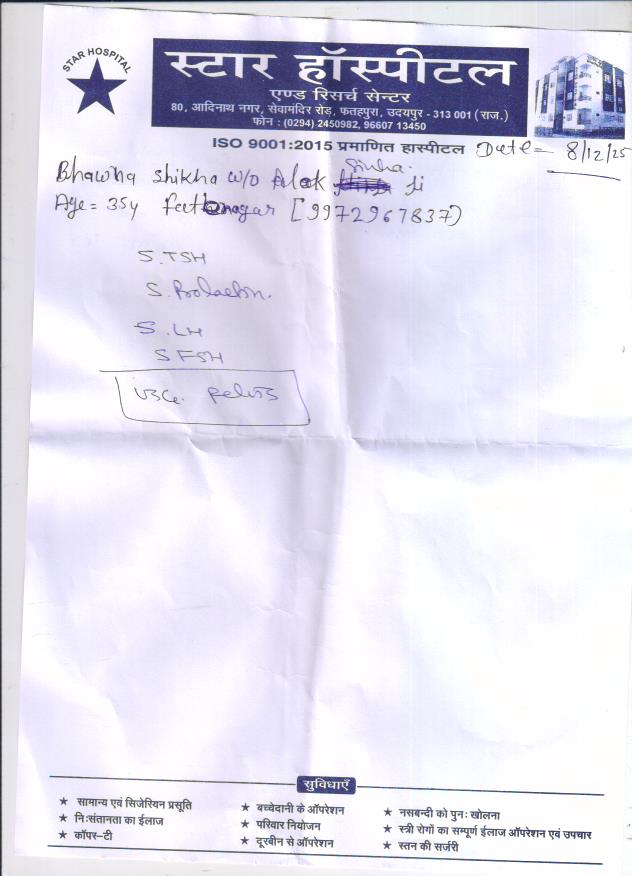 STAR HOSPITAL
स्टार हॉस्पीटल
एण्ड रिसर्च सेन्टर
80, आदिनाथ नगर, सेवामंदिर रोड़, फतहपुरा, उदयपुर - 313 001 (राज.)
फोन : (0294) 2450982, 96607 13450
ISO 9001:2015 प्रमाणित हास्पीटल Date = 8/12/25
Bhawna Shikha w/o Alok Sinha Ji
Age = 35y [9972967837)
S.TSH
S. Prolactin.
S.LH
S FSH
USG. Pelvis
सुविधाएँ
★ सामान्य एवं सिजेरियन प्रसूति ★ बच्चेदानी के ऑपरेशन ★ नसबन्दी को पुनः खोलना
★ निःसंतानता का ईलाज ★ परिवार नियोजन ★ स्त्री रोगों का सम्पूर्ण ईलाज ऑपरेशन एवं उपचार
★ कॉपर-टी ★ दूरबीन से ऑपरेशन ★ स्तन की सर्जरी